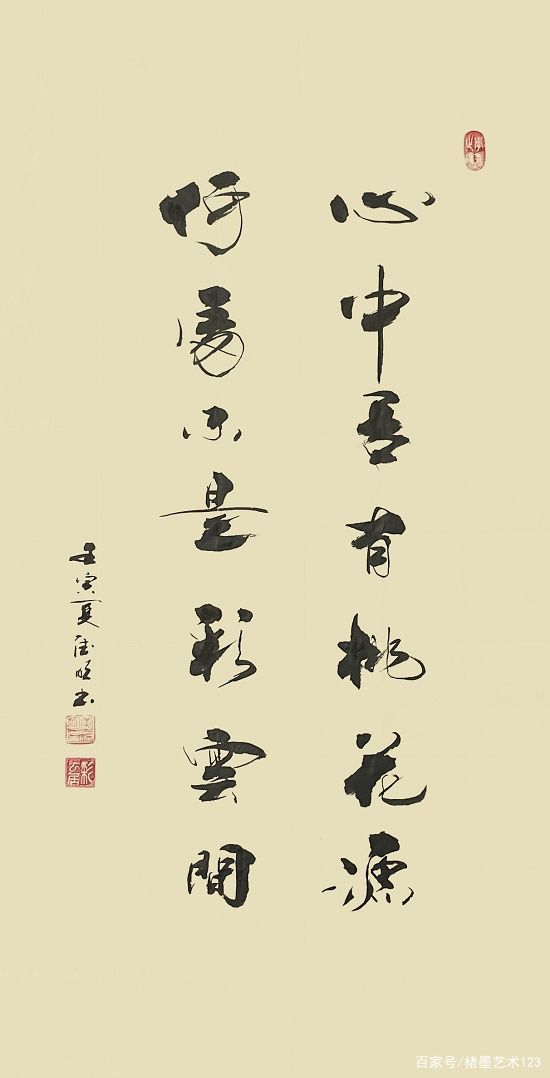 心中吾有桃花源
何處不是彩雲間
壬寅夏书
百家号/楮墨艺术123